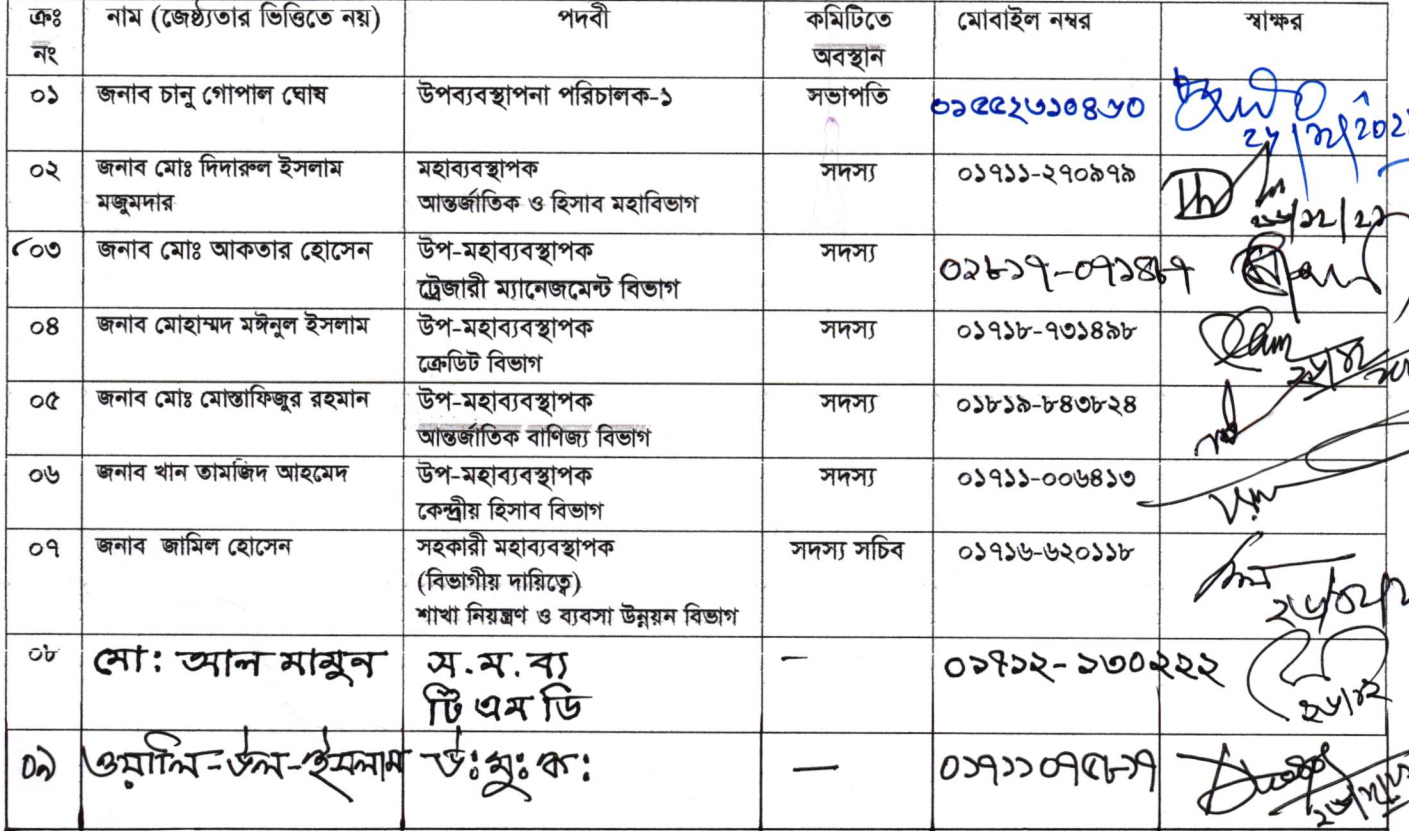 ক্রঃ নং | নাম (জেষ্ঠ্যতার ভিত্তিতে নয়) | পদবী | কমিটিতে অবস্থান | মোবাইল নম্বর | স্বাক্ষর
০১ | জনাব চানু গোপাল ঘোষ | উপব্যবস্থাপনা পরিচালক-১ | সভাপতি | ০১৫৫২৩১০৪৬০
০২ | জনাব মোঃ দিদারুল ইসলাম মজুমদার | মহাব্যবস্থাপক
আন্তর্জাতিক ও হিসাব মহাবিভাগ | সদস্য | ০১৭১১-২৭০৯৭৯
০৩ | জনাব মোঃ আকতার হোসেন | উপ-মহাব্যবস্থাপক
ট্রেজারী ম্যানেজমেন্ট বিভাগ | সদস্য
০৪ | জনাব মোহাম্মদ মঈনুল ইসলাম | উপ-মহাব্যবস্থাপক
ক্রেডিট বিভাগ | সদস্য | ০১৭১৮-৭৩১৪৯৮
০৫ | জনাব মোঃ মোস্তাফিজুর রহমান | উপ-মহাব্যবস্থাপক
আন্তর্জাতিক বাণিজ্য বিভাগ | সদস্য | ০১৮১৯-৮৪৩৮২৪
০৬ | জনাব খান তামজিদ আহমেদ | উপ-মহাব্যবস্থাপক
কেন্দ্রীয় হিসাব বিভাগ | সদস্য | ০১৭১১-০০৬৪১৩
০৭ | জনাব জামিল হোসেন | সহকারী মহাব্যবস্থাপক
(বিভাগীয় দায়িত্বে)
শাখা নিয়ন্ত্রণ ও ব্যবসা উন্নয়ন বিভাগ | সদস্য সচিব | ০১৭১৬-৬২০১১৮
০৮ | মো: আল মামুন | স.ম.ব্য
টি এম ডি | – | ০১৭১২-১৩০২২২
০৯ | ওয়ালি-উল-ইসলাম | উ:মু:ক: | —